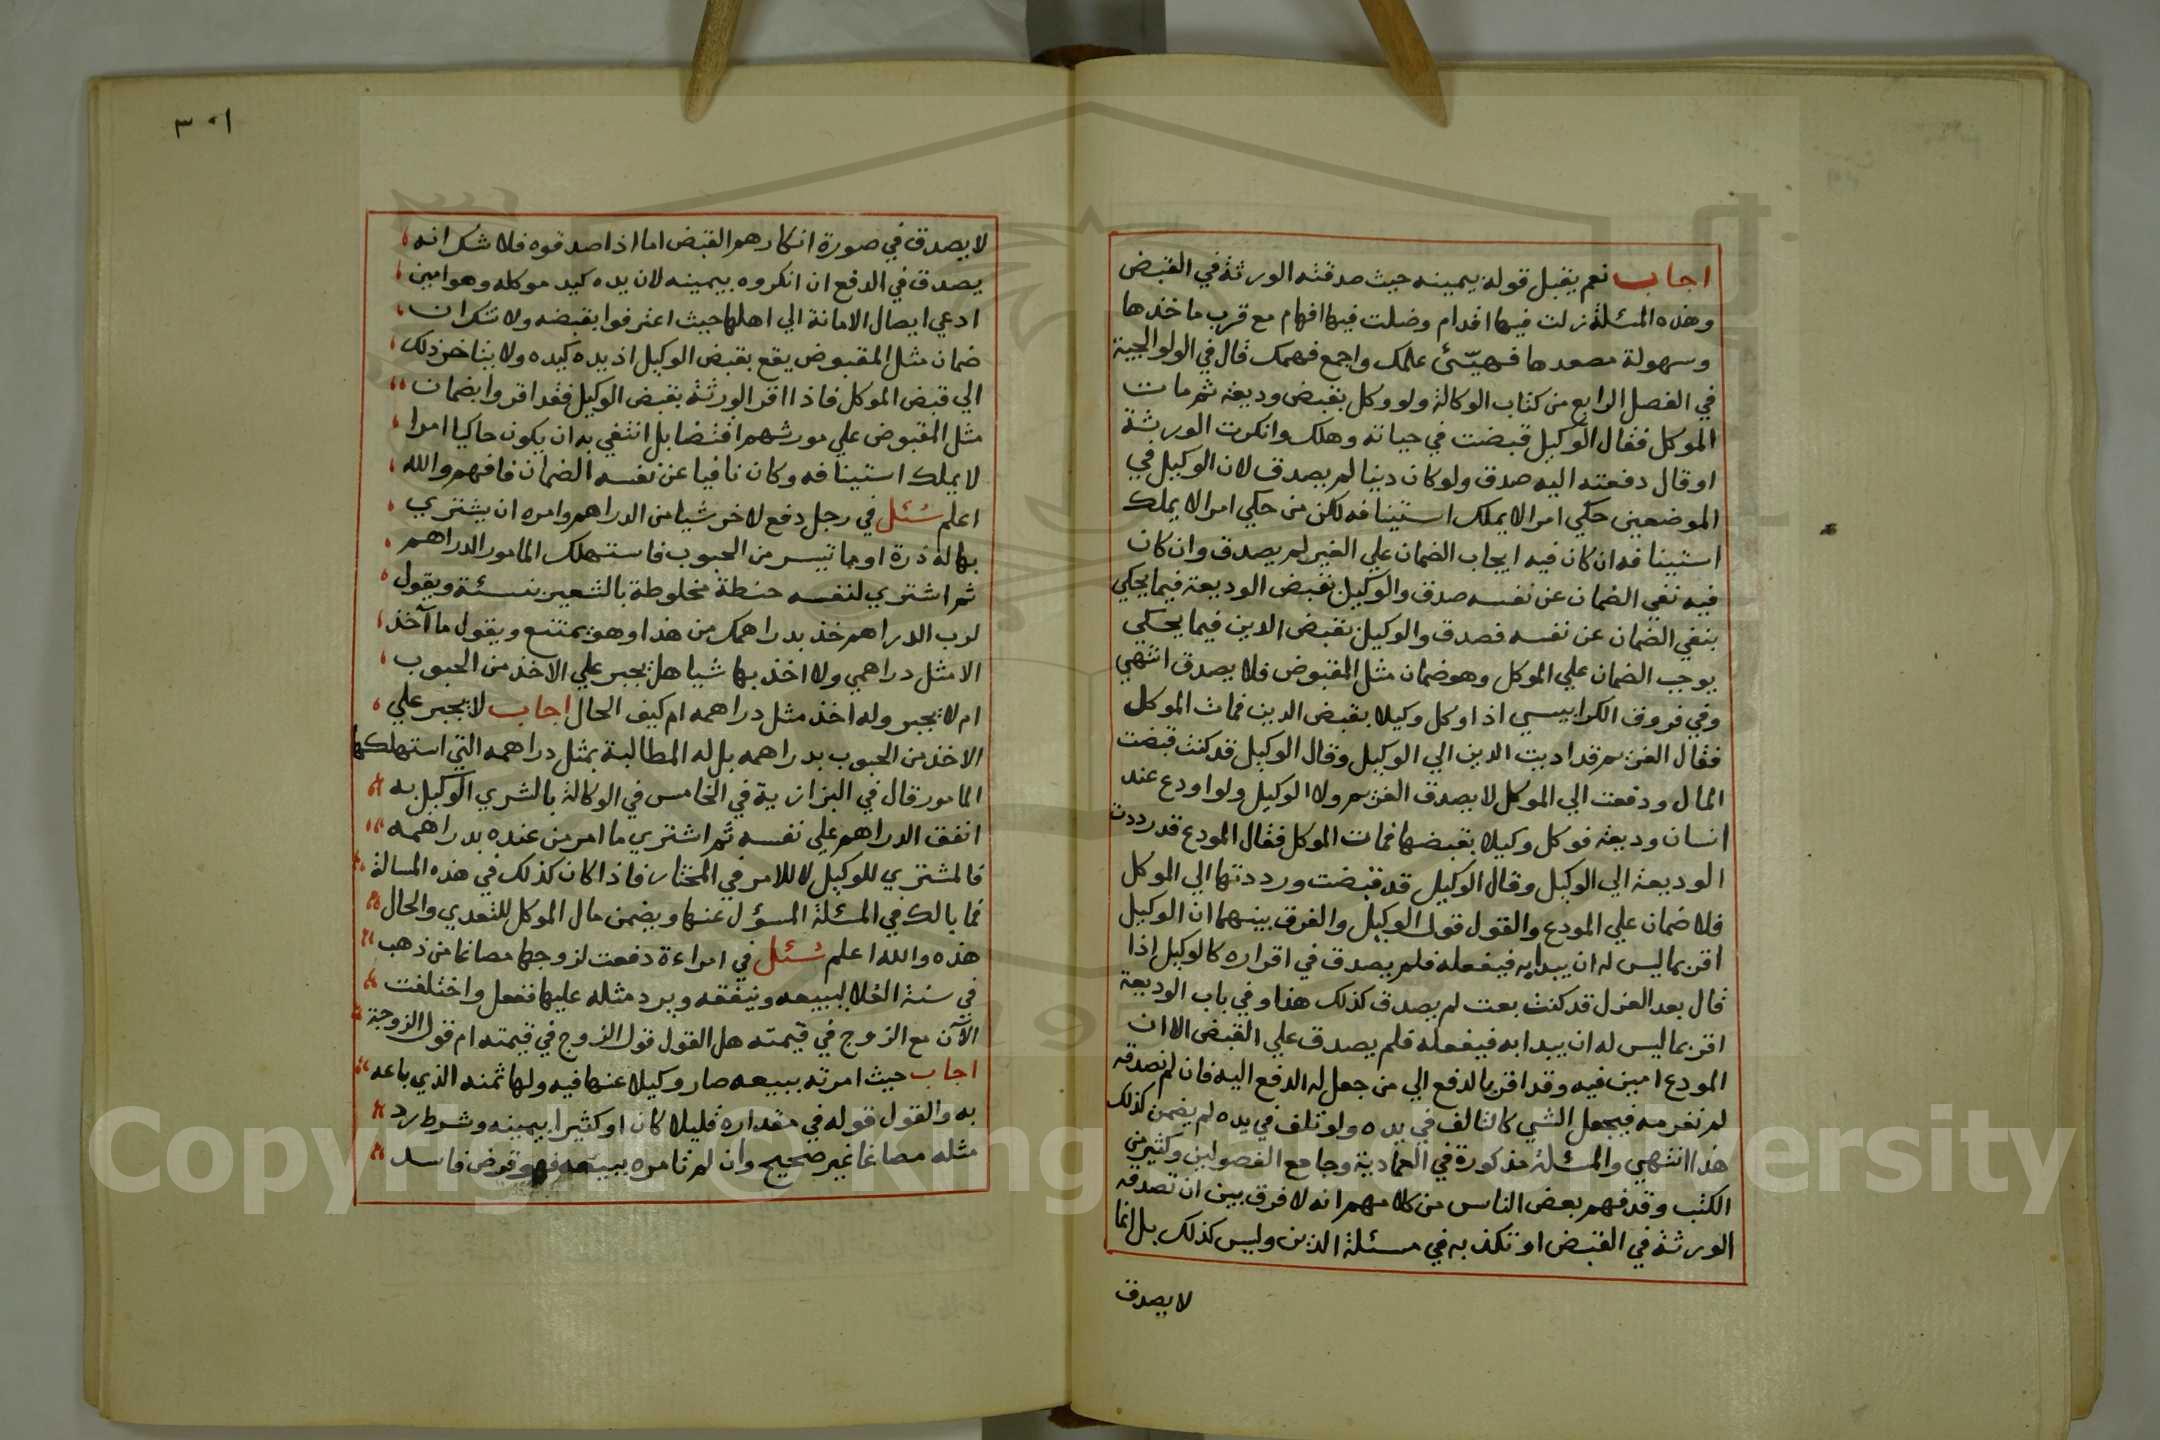 اجاب نعم يقبل قوله بيمينه حيث صدقته الورثة في القبض
وهذه المسئلة زلت فيها اقدام وضلت فيها افهام مع قرب ماخذها
وسهولة مصعدها فهيئ علمك واجمع فهمك قال في الولوالجية
في الفصل الرابع من كتاب الوكالة ولو وكل بقبض وديعة ثم مات
الموكل فقال الوكيل قبضت في حياته وهلك وانكرت الورثة
او قال دفعته اليه صدق ولو كان دينا لم يصدق لان الوكيل في
الموضعين حكي امرا لا يملك استينافه لكن من حكي امرا لا يملك
استينافه ان كان فيه ايجاب الضمان علي الغير لم يصدق وان كان
فيه نفي الضمان عن نفسه صدق والوكيل بقبض الوديعة فيما يحكي
بنفي الضمان عن نفسه فصدق والوكيل بقبض الدين فيما يحكي
يوجب الضمان علي الموكل وهو ضمان مثل المقبوض فلا يصدق انتهي
وفي فروق الكرابيسي اذا وكل وكيلا بقبض الدين فمات الموكل
فقال الغريم قد اديت الدين الي الوكيل وقال الوكيل قد كنت قبضت
المال ودفعت الي الموكل لا يصدق الغريم ولا الوكيل ولو اودع عند
انسان وديعة فوكل وكيلا بقبضها فمات الموكل فقال المودع قد رددت
الوديعة الي الوكيل وقال الوكيل قد قبضت ورددتها الي الموكل
فلا ضمان علي المودع والقول قول الوكيل والفرق بينهما ان الوكيل
اقر بما ليس له ان يبدا به فيفعله فلم يصدق في اقراره كالوكيل اذا
قال بعد العزل قد كنت بعت لم يصدق كذلك هذا وفي باب الوديعة
اقر بما ليس له ان يبدا به فيفعله فلم يصدق علي القبض الا ان
المودع امين فيه وقد اقر بالدفع الي من جعل له الدفع اليه فان لم نصدقه
لم نغرمه فيجعل الشي كالتالف في يده ولو تلف في يده لم يضمن كذلك
هذا انتهي والمسئلة مذكورة في العمادية وجامع الفصولين وكثير من
الكتب وقد فهم بعض الناس من كلامهم انه لا فرق بين ان تصدقه
الورثة في القبض او تكذبه في مسئلة الدين وليس كذلك بل انما
لا يصدق
٣٠١
لا يصدق في صورة انكارهم القبض اما اذا صدقوه فلا شك انه
يصدق في الدفع ان انكروه بيمينه لان يده كيد موكله وهو امين
ادعي ايصال الامانة الي اهلها حيث اعترفوا بقبضه ولا شك ان
ضمان مثل المقبوض يقع بقبض الوكيل اذ يده كيده ولا يتاخر ذلك
الي قبض الموكل فاذا اقر الورثة بقبض الوكيل فقد اقروا بضمان
مثل المقبوض علي مورثهم اقتضا بل انتفي به ان يكون حاكيا امرا
لا يملك استينافه وكان نافيا عن نفسه الضمان فافهم والله
اعلم سئل في رجل دفع لاخر شيا من الدراهم وامره ان يشتري
بها له ذرة او بما تيسر من الحبوب فاستهلك المامور الدراهم
ثم اشتري لنفسه حنطة مخلوطة بالشعير بنسئة ويقول
لرب الدراهم خذ بدراهمك من هذا وهو يمتنع ويقول ما آخذ
الا مثل دراهمي ولا اخذ بها شيا هل يجبر علي الاخذ من الحبوب
ام لا يجبر وله اخذ مثل دراهمه ام كيف الحال اجاب لا يجبر علي
الاخذ من الحبوب بدراهمه بل له المطالبة بمثل دراهمه التي استهلكها
المامور قال في البزازية في الخامس في الوكالة بالشري الوكيل به
انفق الدراهم علي نفسه ثم اشتري ما امر من عنده بدراهمه
فالمشتري للوكيل لا للامر في المختار فاذا كان كذلك في هذه المسالة
فما بالك في المسئلة المسؤل عنها ويضمن مال الموكل للتعدي والحال
هذه والله اعلم سئل في امراءة دفعت لزوجها مصاغا من ذهب
في سنة الغلا ليبيعه وينفقه ويرد مثله عليها ففعل واختلفت
الآن مع الزوج في قيمته هل القول قول الزوج في قيمته ام قول الزوجة
اجاب حيث امرته ببيعه صار وكيلا عنها فيه ولها ثمنه الذي باعه
به والقول قوله في مقداره قليلا كان او كثيرا بيمينه وشرط رد
مثله مصاغا غير صحيح وان لم تامره ببيعه فهو قرض فاسد
Copyright © King University